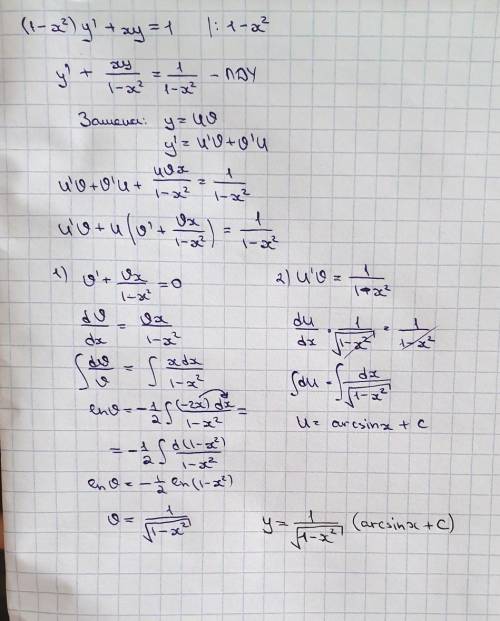 (1-x²) y' + xy = 1   |: 1-x²
y' + xy/(1-x²) = 1/(1-x²) - ЛДУ
Замена: y = uϑ
y' = u'ϑ + ϑ'u
u'ϑ + ϑ'u + uϑx/(1-x²) = 1/(1-x²)
u'ϑ + u(ϑ' + ϑx/(1-x²)) = 1/(1-x²)
1) ϑ' + ϑx/(1-x²) = 0
dϑ/dx = ϑx/(1-x²)
∫ dϑ/ϑ = ∫ xdx/(1-x²)
lnϑ = -1/2 ∫ (-2x) dx/(1-x²) =
= -1/2 ∫ d(1-x²)/(1-x²)
lnϑ = -1/2 ln(1-x²)
ϑ = 1/√(1-x²)
2) u'ϑ = 1/(1-x²)
du/dx · 1/√(1-x²) = 1/(1-x²)
∫du = ∫ dx/√(1-x²)
u = arcsinx + C
y = 1/√(1-x²) (arcsinx + C)